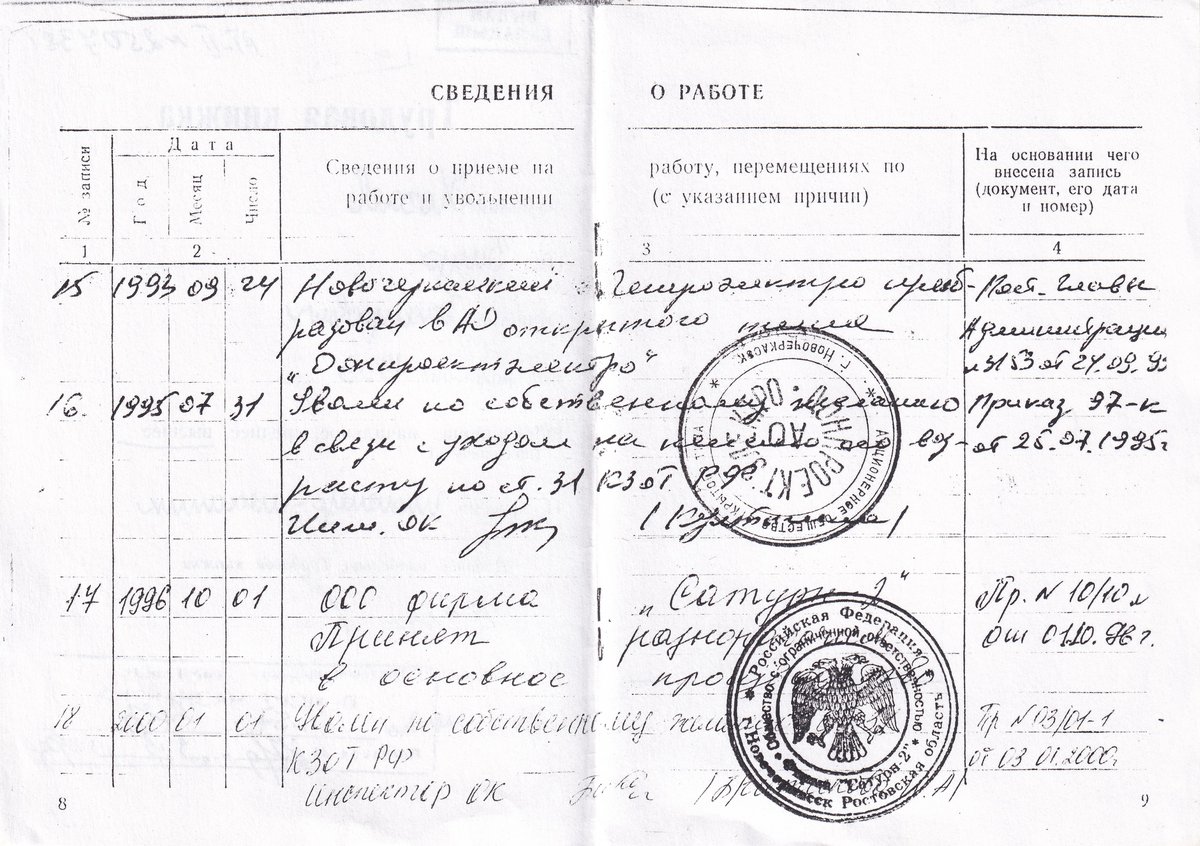 СВЕДЕНИЯ О РАБОТЕ
№ записи
Дата
Год
Месяц
Число
Сведения о приеме на работу, перемещениях по
работе и увольнении (с указанием причин)
На основании чего
внесена запись
(документ, его дата
и номер)
1 2 3 4
15 1993 09 24 Новочеркасский Гипроэлектро преоб- Пост. Главы
разован в АО открытого типа Администрации
"Южпроектэлектро" 3153 от 24.09.93
16. 1995 07 31 Уволен по собственному желанию Приказ 97-к
в связи с уходом на пенсию по воз- от 25.07.1995г
расту по ст. 31 КЗоТ РФ
Инсп. ОК
АКЦИОНЕРНОЕ ОБЩЕСТВО ОТКРЫТОГО ТИПА
Г. НОВОЧЕРКАССК
АО
17 1996 10 01 ООО фирма "Сатурн-2" Пр. N 10/10
Принят от 01.10.96г.
в основное
Российская Федерация
Общество с ограниченной ответственностью
"Сатурн-2"
г. Новочеркасск Ростовская область
18 2000 01 01 Уволен по собственному Пр N 03/01-1
КЗОТ РФ от 03.01.2000г
Инспектор ОК
8
9